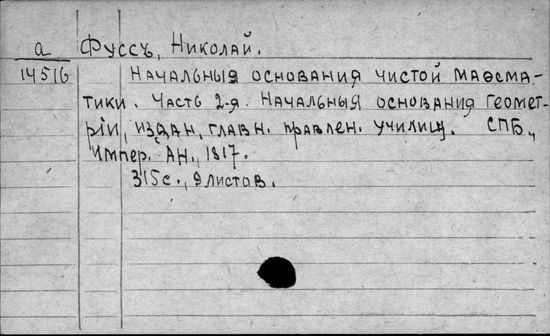 а Фуссъ, Николай.
14516 Начальныя основания чистой маѳема-
тики. Часть 2-я. Начальныя основания геомет-
рiи, издан. главн. правлен. училищ. СПБ.,
Импер. АН., 1817.
315с., 9 листов.